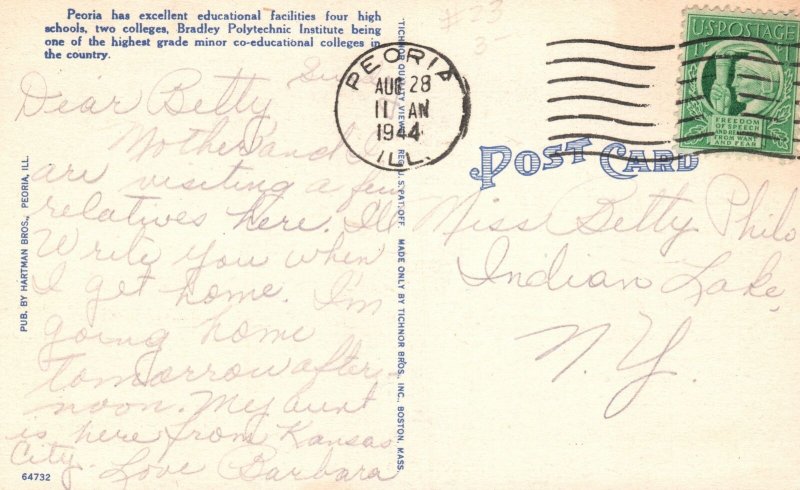 Peoria has excellent educational facilities four high
schools, two colleges, Bradley Polytechnic Institute being
one of the highest grade minor co-educational colleges in
the country.
Dear Betty
Mother and I
are visiting a few
relatives here. I'll
Write you when
I get home. I'm
going home
tomorrow after-
noon. My aunt
is here from Kansas
City. Love Barbara
64732
PUB. BY HARTMAN BROS., PEORIA, ILL.
TICHNOR QUALITY VIEWS REG. U.S. PAT. OFF. MADE ONLY BY TICHNOR BROS., INC., BOSTON, MASS.
#33
3
PEORIA
AUG 28
11 AM
1944
ILL.
U.S. POSTAGE
FREEDOM
OF SPEECH
AND RELIGION
FROM WANT
AND FEAR
POST CARD
Miss Betty Philo
Indian Lake,
N.Y.